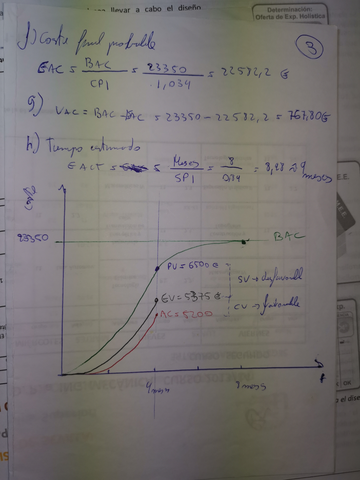 llevar a cabo el diseño
Determinación:
Oferta de Exp. Holística
f) Coste final probable
3
EAC = BAC / CPI = 23350 / 1,034 = 22582,2 €
g) VAC = BAC - EAC = 23350 - 22582,2 = 767,80€
h) Tiempo estimado
EACT = = Meses / SPI = 8 / = 9 meses
coste
23350
BAC
PV = 6500 €
SV → desfavorable
EV = 5375 €
CV → favorable
AC = 5200
4 meses
t